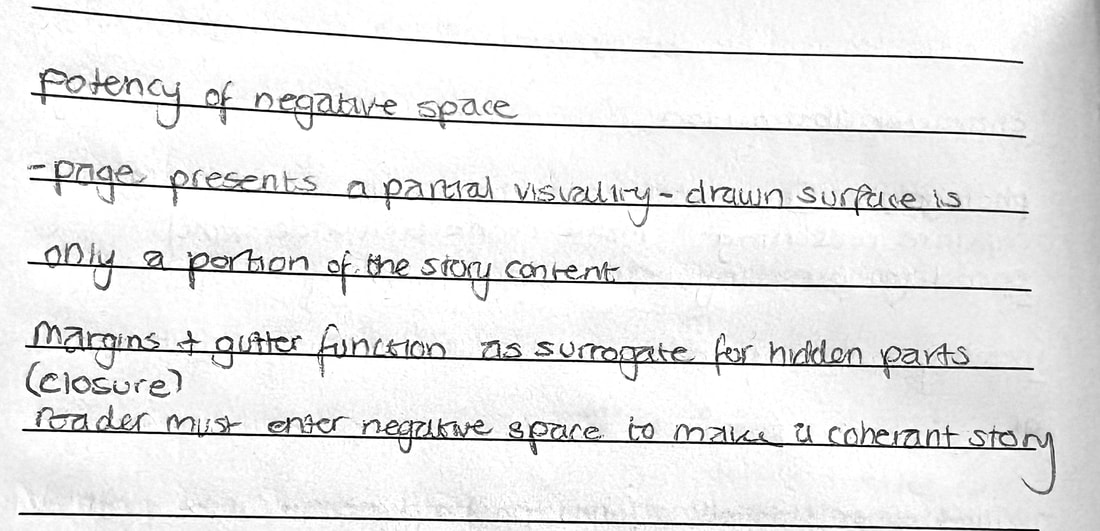 Potency of negative space
- page presents a partial visuality - drawn surface is
only a portion of the story content
margins + gutter function as surrogate for hidden parts
(closure)
reader must enter negative space to make a coherant story